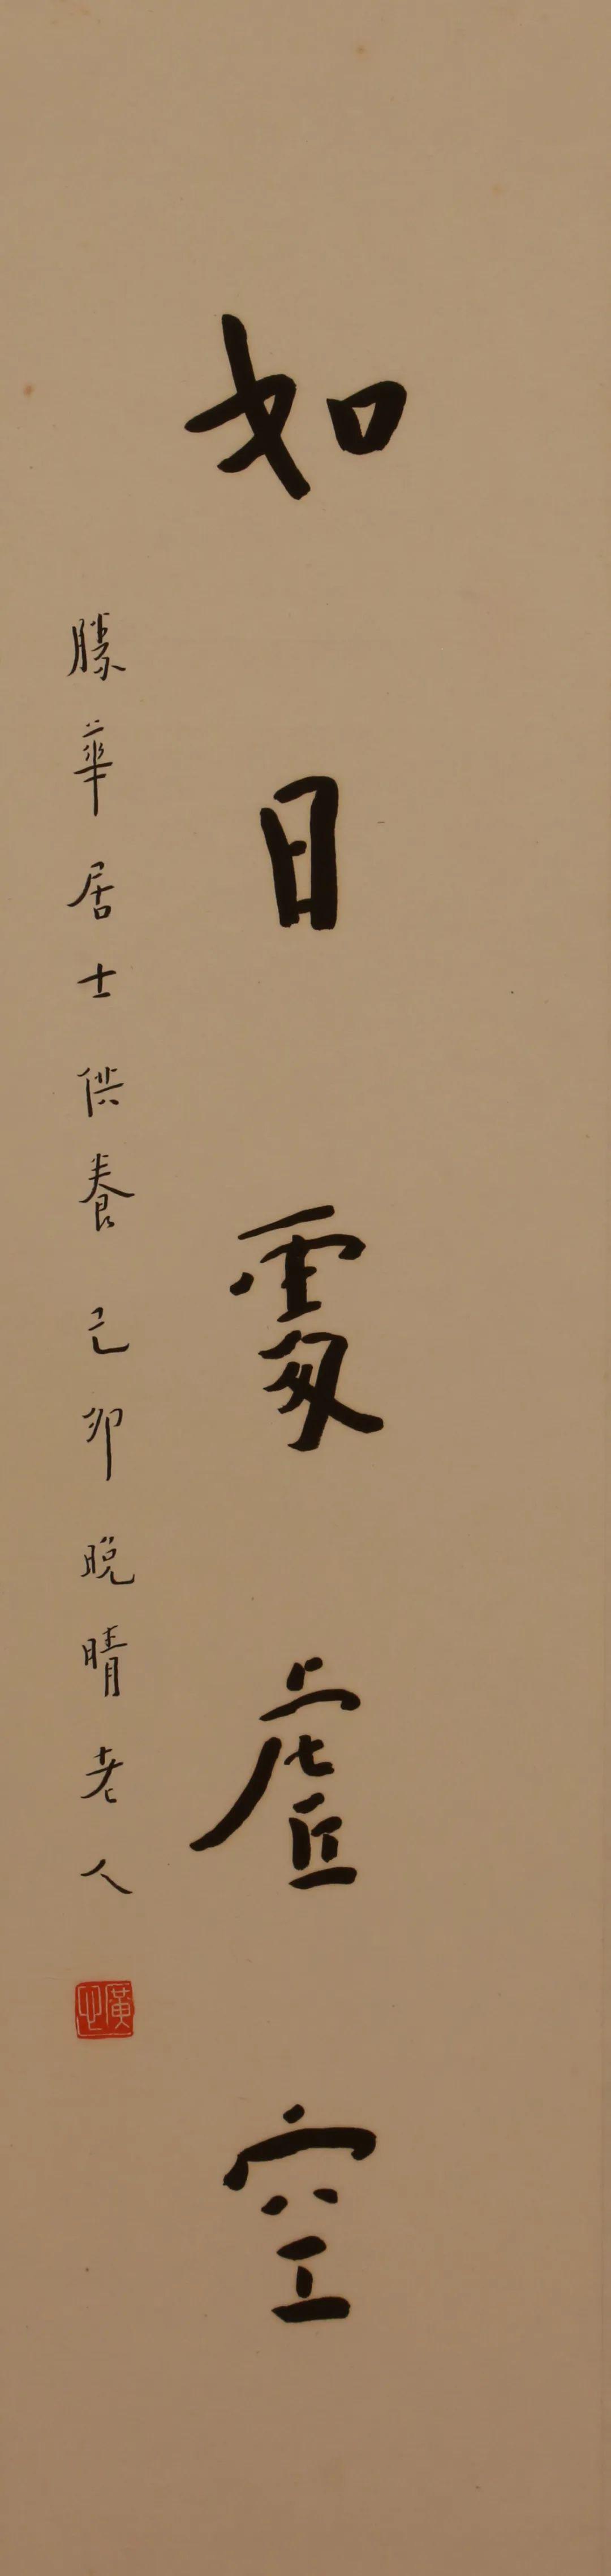 如日處虛空
勝華居士供養 己卯 晚晴老人